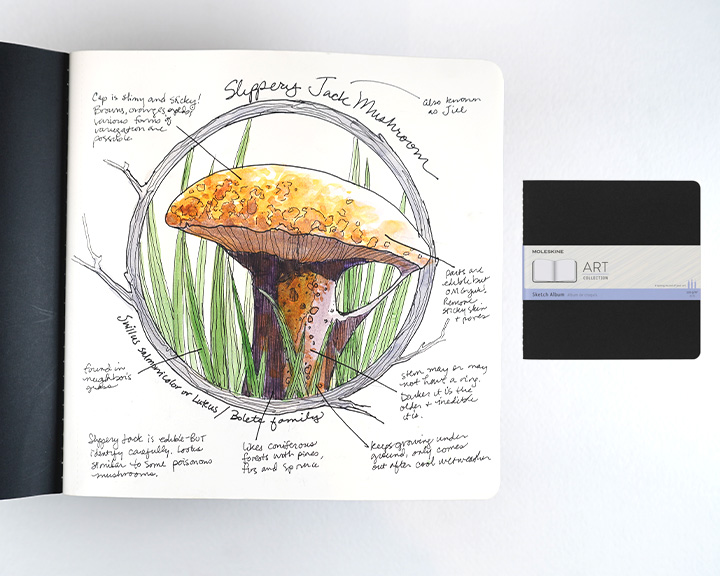 Slippery Jack Mushroom
also known
as Jill
Cap is slimy and sticky!
Browns, oranges, reds,
various forms of
variegation are
possible.
parts are
edible but
OMG yuk!
Remove
sticky skin
+ pores
stem may or may
not have a ring.
Darker it is the
older + inedible
it is.
found in
neighbors
grass
Suillus salmonicolor or Luteus / Bolete family
Slippery Jack is edible-BUT
identify carefully. Looks
similar to some poisonous
mushrooms.
likes coniferous
forests with pines,
firs and spruce
keeps growing under
ground, only comes
out after cool wet weather
MOLESKINE
ART
COLLECTION
Sketch Album